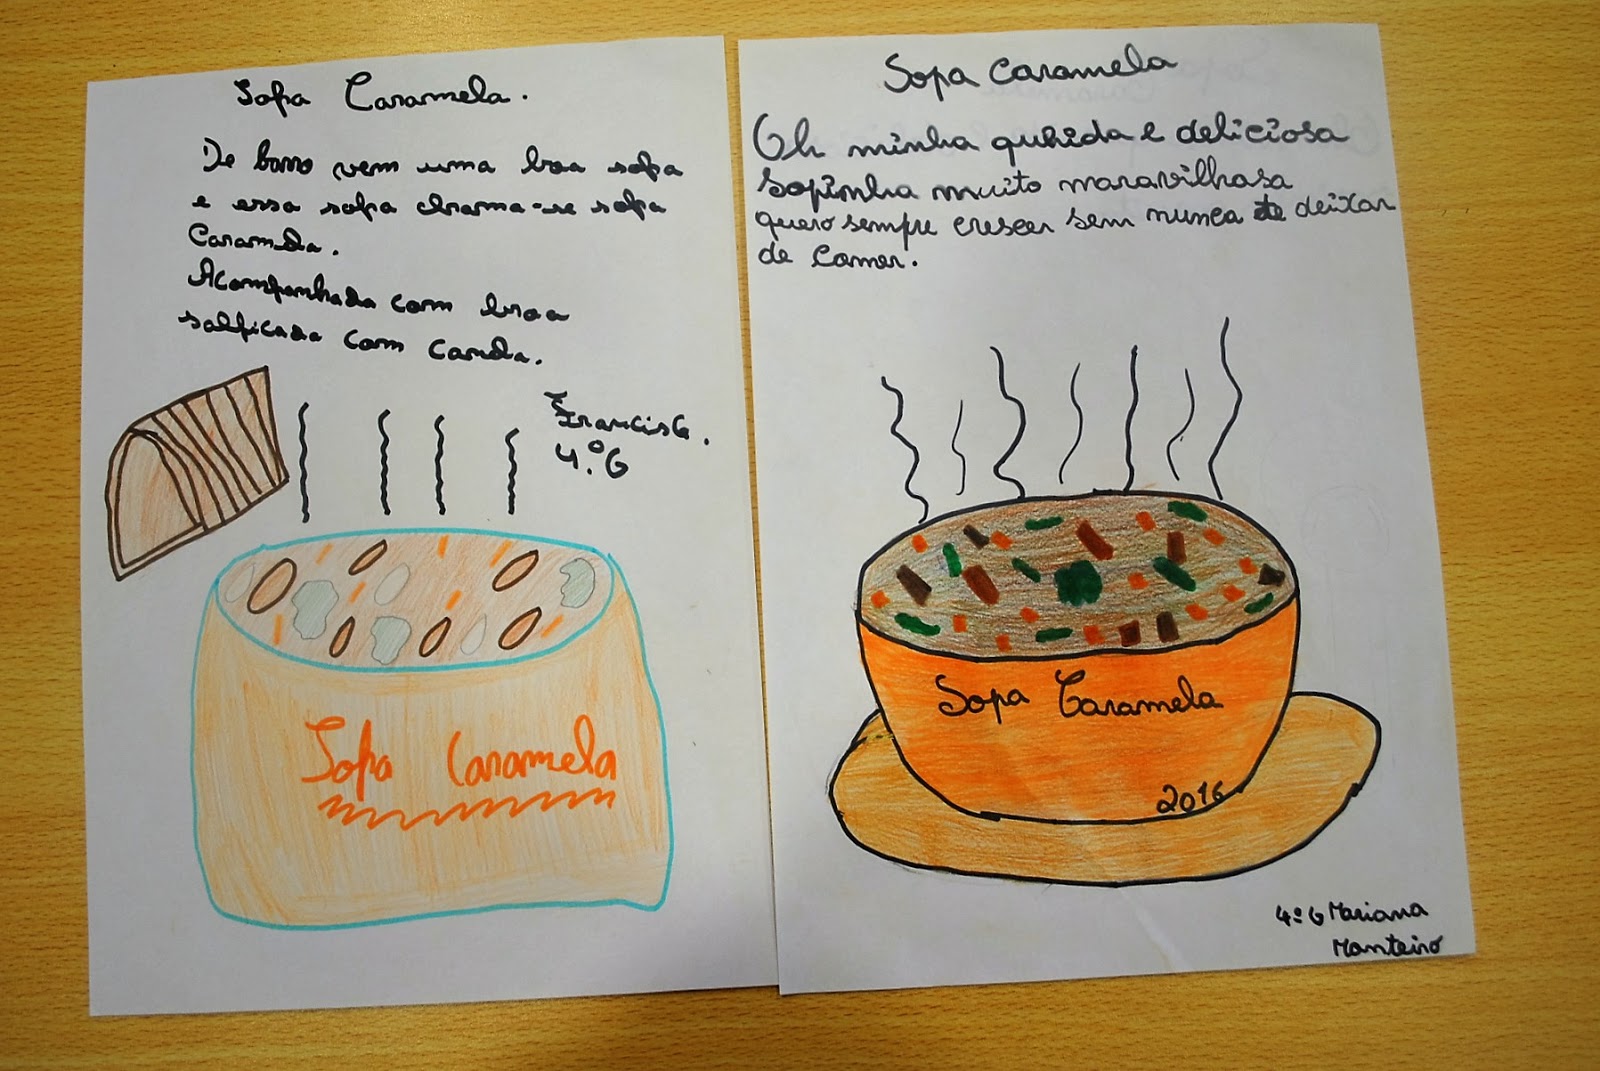 Sopa Caramela.
De barro vem uma boa sopa
e essa sopa chama-se sopa
Caramela.
Acompanhada com broa
salpicada com canela.
Francisco.
4.º G
Sopa Caramela
Sopa Caramela
Oh minha querida e deliciosa
sopinha muito maravilhosa
quero sempre crescer sem nunca te deixar
de comer.
Sopa Caramela
2016
4º G Mariana
Monteiro